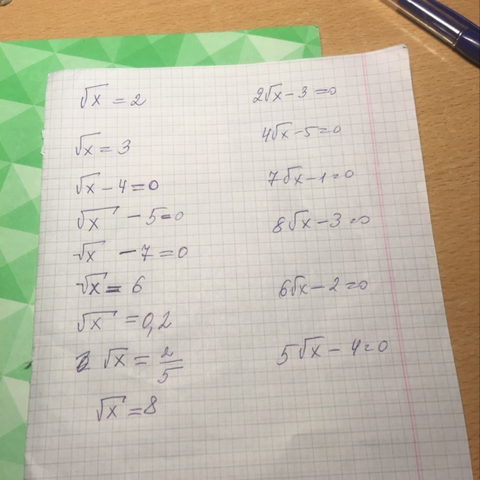 √x = 2
√x = 3
√x - 4 = 0
√x - 5 = 0
√x - 7 = 0
√x = 6
√x = 0,2
√x = 2/5
√x = 8
2√x - 3 = 0
4√x - 5 = 0
7√x - 1 = 0
8√x - 3 = 0
6√x - 2 = 0
5√x - 4 = 0